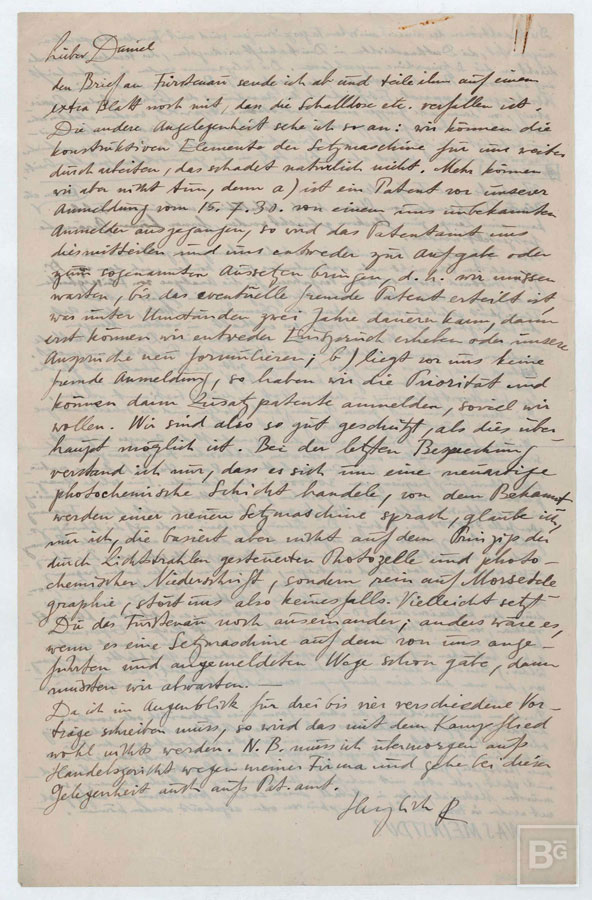 Lieber Daniel
den Brief an Fürstenau sende ich ab und teile ihm auf einem
extra Blatt noch mit, dass die Schalldose etc. verfallen ist.
Die andere Angelegenheit sehe ich so an: wir können die
konstruktiven Elemente der Setzmaschine für uns weiter
durcharbeiten, das schadet natürlich nicht. Mehr können
wir aber nicht tun, denn a) ist ein Patent vor unserer
Anmeldung vom 15.7.30. von einem uns unbekannten
Anmelder ausgegangen, so wird das Patentamt uns
dies mitteilen und uns entweder zur Aufgabe oder
zum sogenannten Aussetzen bringen, d.h. wir müssen
warten, bis das eventuelle fremde Patent erteilt ist,
was unter Umständen zwei Jahre dauern kann, dann
erst können wir entweder Einspruch erheben oder unsere
Ansprüche neu formulieren; b) liegt vor uns keine
fremde Anmeldung, so haben wir die Priorität und
können dann Zusatzpatente anmelden, soviel wir
wollen. Wir sind also so gut geschützt, als dies über-
haupt möglich ist. Bei der letzten Besprechung
verstand ich nur, dass es sich um eine neuartige
photochemische Schicht handele, von dem Bekannt
werden einer neuen Setzmaschine sprach, glaube ich,
nur ich, die basiert aber nicht auf dem Prinzip der
durch Lichtstrahlen gesteuerten Photozelle und photo-
chemischer Niederschrift, sondern rein auf Morsetele
graphie, stört uns also keinesfalls. Vielleicht setzt
Du das Fürstenau noch auseinander; anders wäre es,
wenn es eine Setzmaschine auf dem von uns ange-
führten und angemeldeten Wege schon gäbe, dann
müssten wir abwarten. —
Da ich im Augenblick für drei bis vier verschiedene Vor-
träge schreiben muss, so wird das mit dem Kampflied
wohl nichts werden. N.B. muss ich übermorgen aufs
Handelsgericht wegen meiner Firma und gehe bei dieser
Gelegenheit auch aufs Pat.amt.
Herzlich R
BG